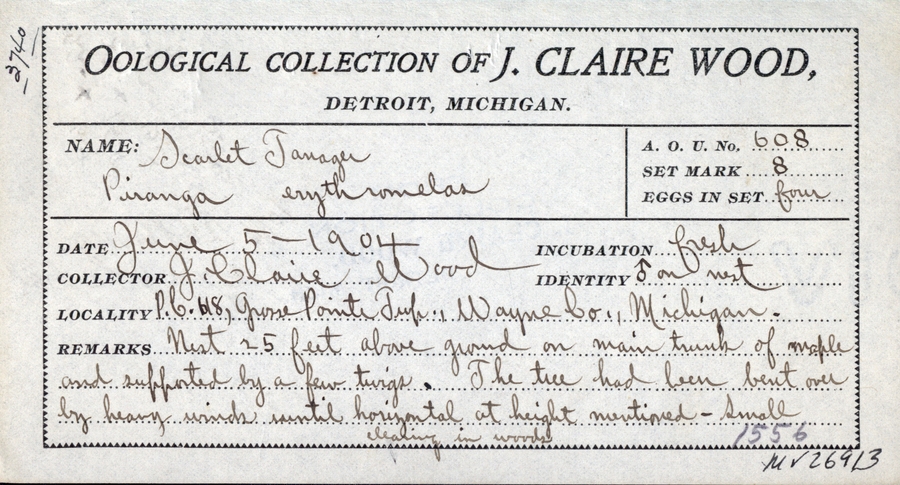 3740
OOLOGICAL COLLECTION OF J. CLAIRE WOOD,
DETROIT, MICHIGAN.
NAME: Scarlet Tanager
Piranga erythromelas
A. O. U. No. 608
SET MARK 8
EGGS IN SET four
DATE June 5-1904 INCUBATION fresh
COLLECTOR J. Claire Wood IDENTITY ♂ on nest
LOCALITY P.C. 618, Grosse Pointe Twp., Wayne Co., Michigan.
REMARKS Nest 25 feet above ground on main trunk of maple
and supported by a few twigs. The tree had been bent over
by heavy winds until horizontal at height mentioned - small
clearing in woods
1556
MV26913